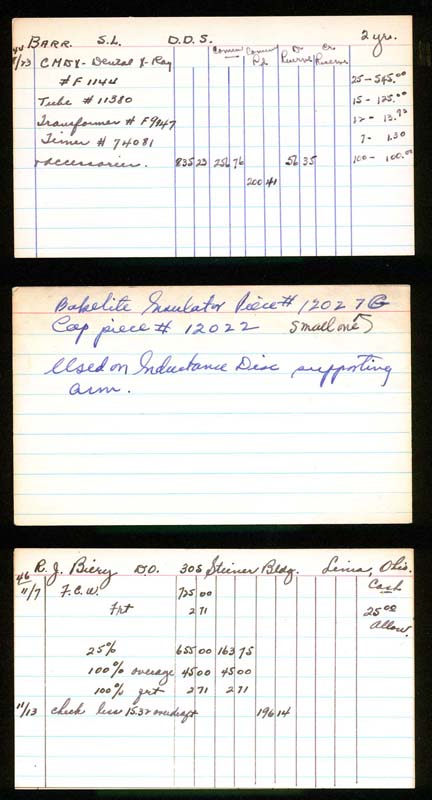 BARR. S.L. D.D.S. 2 yrs.
Comm Comm Pd Dr Reserve Cr Reserve
44
8/23 CMDX - Dental X-Ray
#F 1144 25 - 545.00
Tube # 11380 15 - 125.00
Transformer # F9147 12 - 13.93
Timer # 74081 7 - 1.30
+ accessories. 835 23 256 76 56 35 100 - 100.00
200 41
Bakelite Insulator Piece # 12027 G
Cap piece # 12022 Small one
Used on Inductance Disc supporting
arm.
R. J. Biery D.O. 305 Steiner Bldg. Lima, Ohio.
46 Cash
11/7 F.C.W. 725 00
Frt 2 71 25 00
Allow.
25% 655 00 163 75
100% overage 45 00 45 00
100% frt 2 71 2 71
11/13 check less 15.32 overdraft 196 14